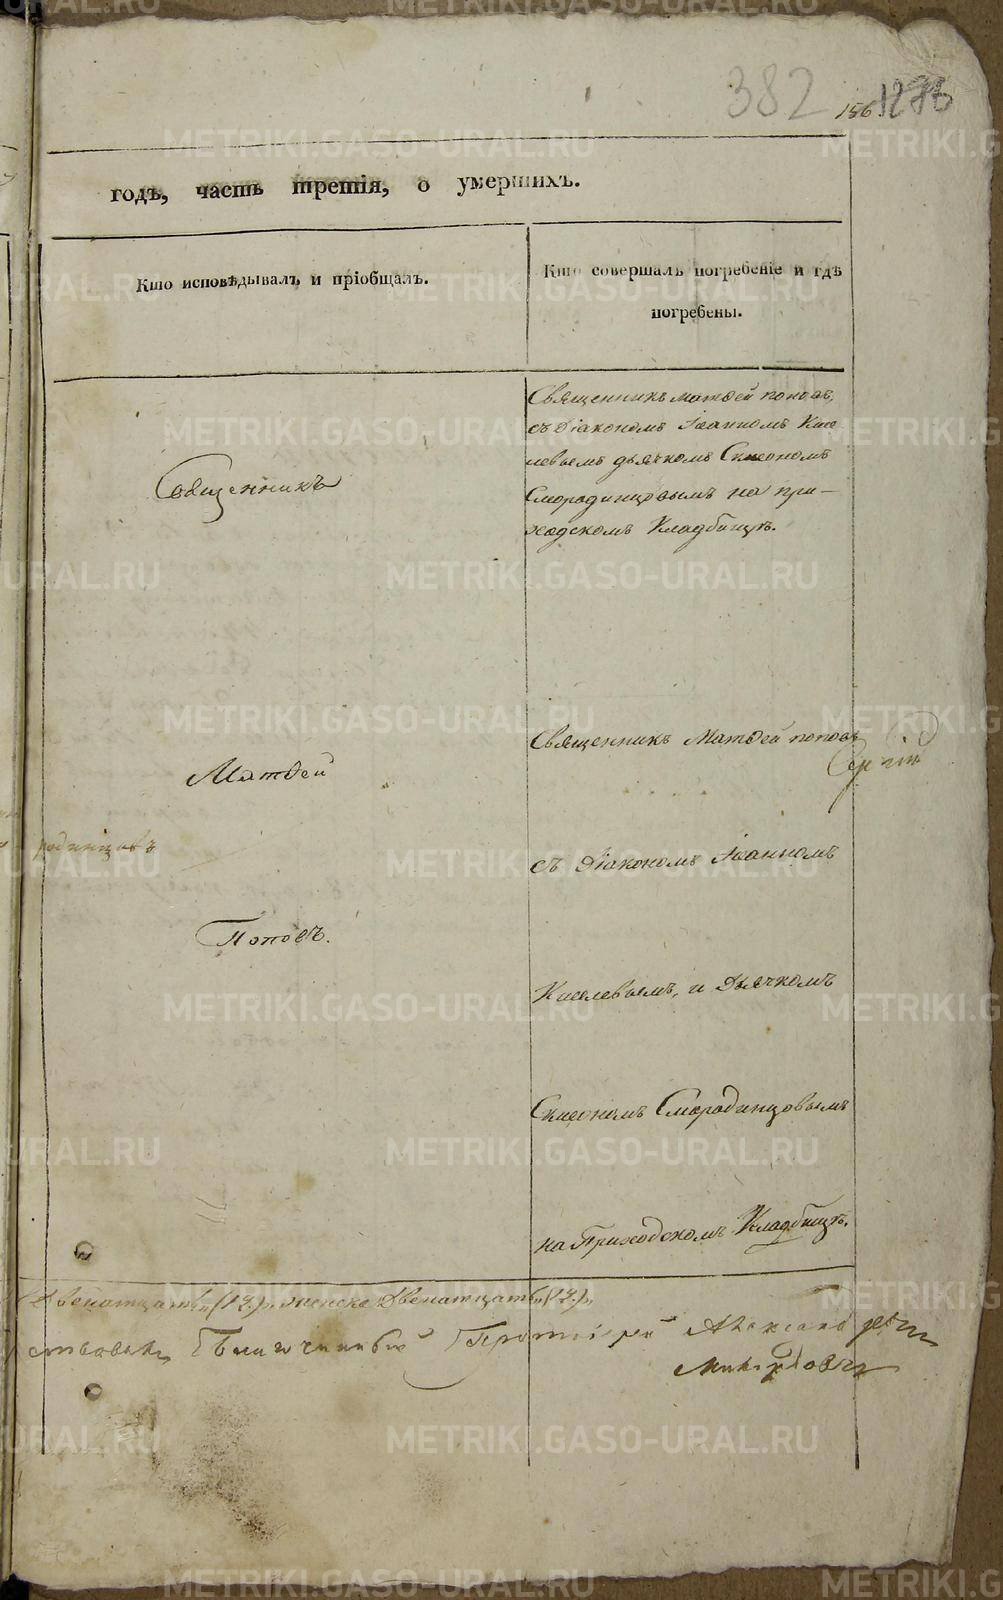 382 156
годъ, часть третія, о умершихъ.
Кто исповѣдывалъ и пріобщалъ.
Кто совершалъ погребеніе и гдѣ
погребены.
Священникъ Матѳей поповъ,
съ Діакономъ Іоанномъ Кисе
левымъ дьячкомъ Симеономъ
Смородинцовымъ на при-
ходскомъ Кладбищѣ.
Священникъ
Матѳей
Поповъ.
Священникъ Матѳей поповъ
Сергій
съ Діакономъ Іоанномъ
родинцовъ
Киселевымъ, и Дьячкомъ
Симеономъ Смородинцовымъ
на Приходскомъ Кладбищѣ.
Двенатцать (12.) женска Двенатцать (12.)
Благочинный Протоіерей Александръ
METRIKI.GASO-URAL.RU